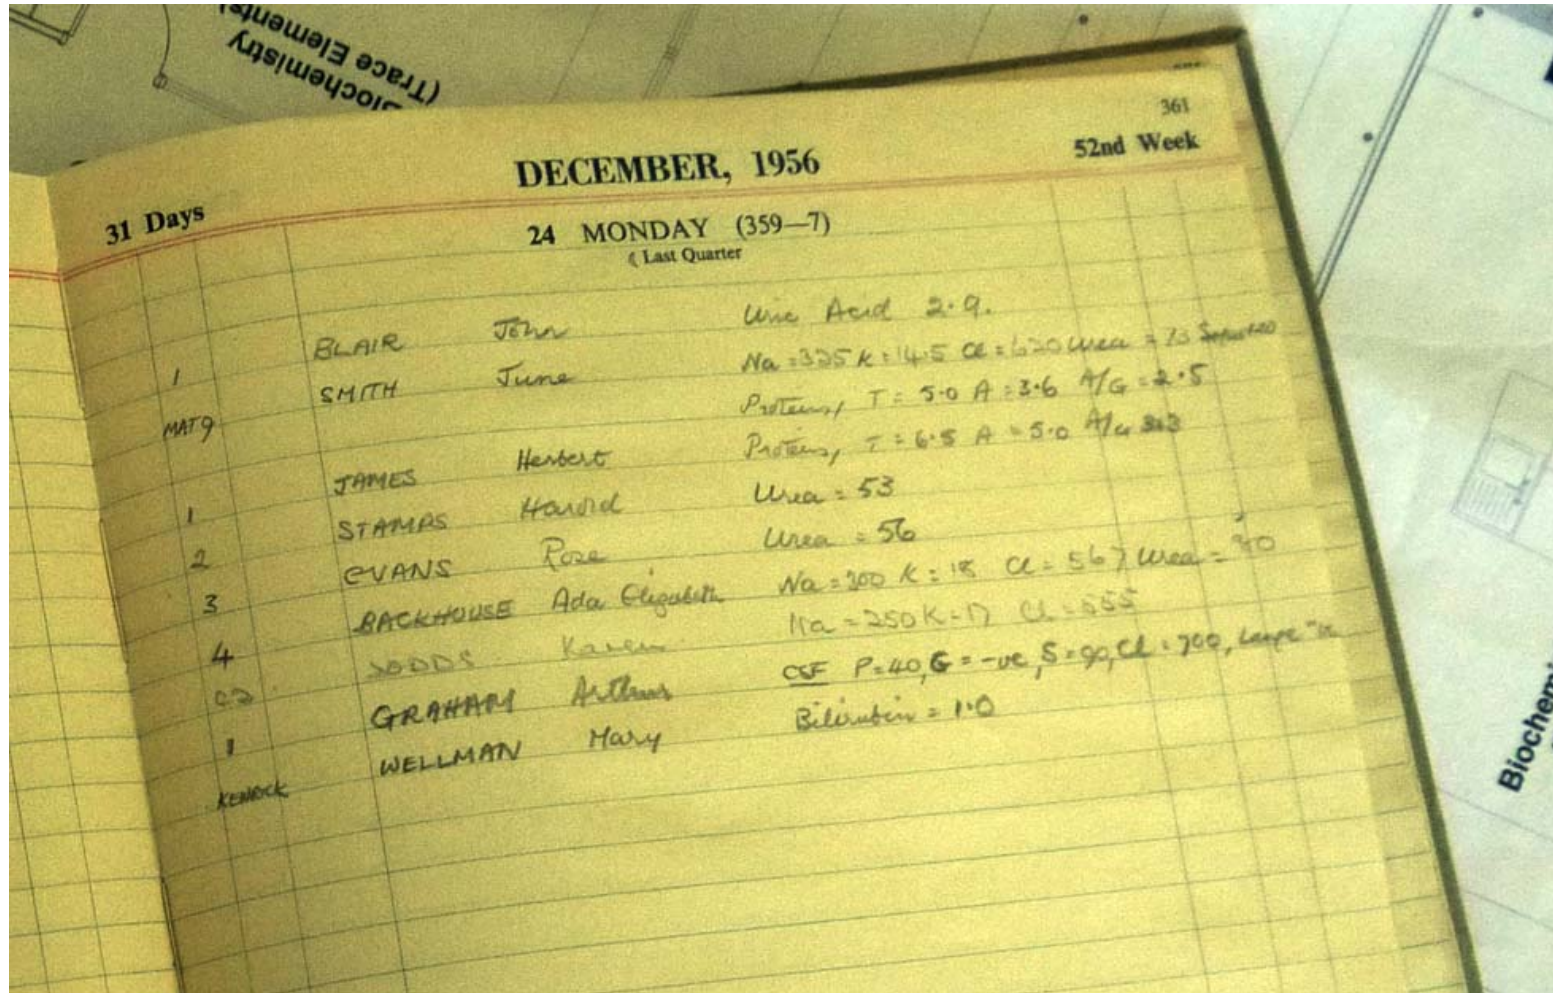 Biochemistry
(Trace Elements)
361
DECEMBER, 1956
52nd Week
31 Days
24 MONDAY (359—7)
Last Quarter
1 BLAIR John Uric Acid 2.9.
MAT 9 SMITH June Na = 325 K = 14.5 Cl = 620 Urea =
Proteins, T = 5.0 A = 3.6 A/G = 2.5
1 JAMES Herbert Proteins, T = 6.5 A = 5.0 A/G 3.3
2 STAMPS Harold Urea = 53
3 EVANS Rose Urea = 56
4 BACKHOUSE Ada Elizabeth Na = 300 K = 18 Cl = 567 Urea =
DODDS Karen Na = 250 K = 17 Cl = 555
1 GRAHAM Arthur CSF P = 40, G = -ve, S = 90, Cl = 700,
KENRICK WELLMAN Mary Bilirubin = 1.0